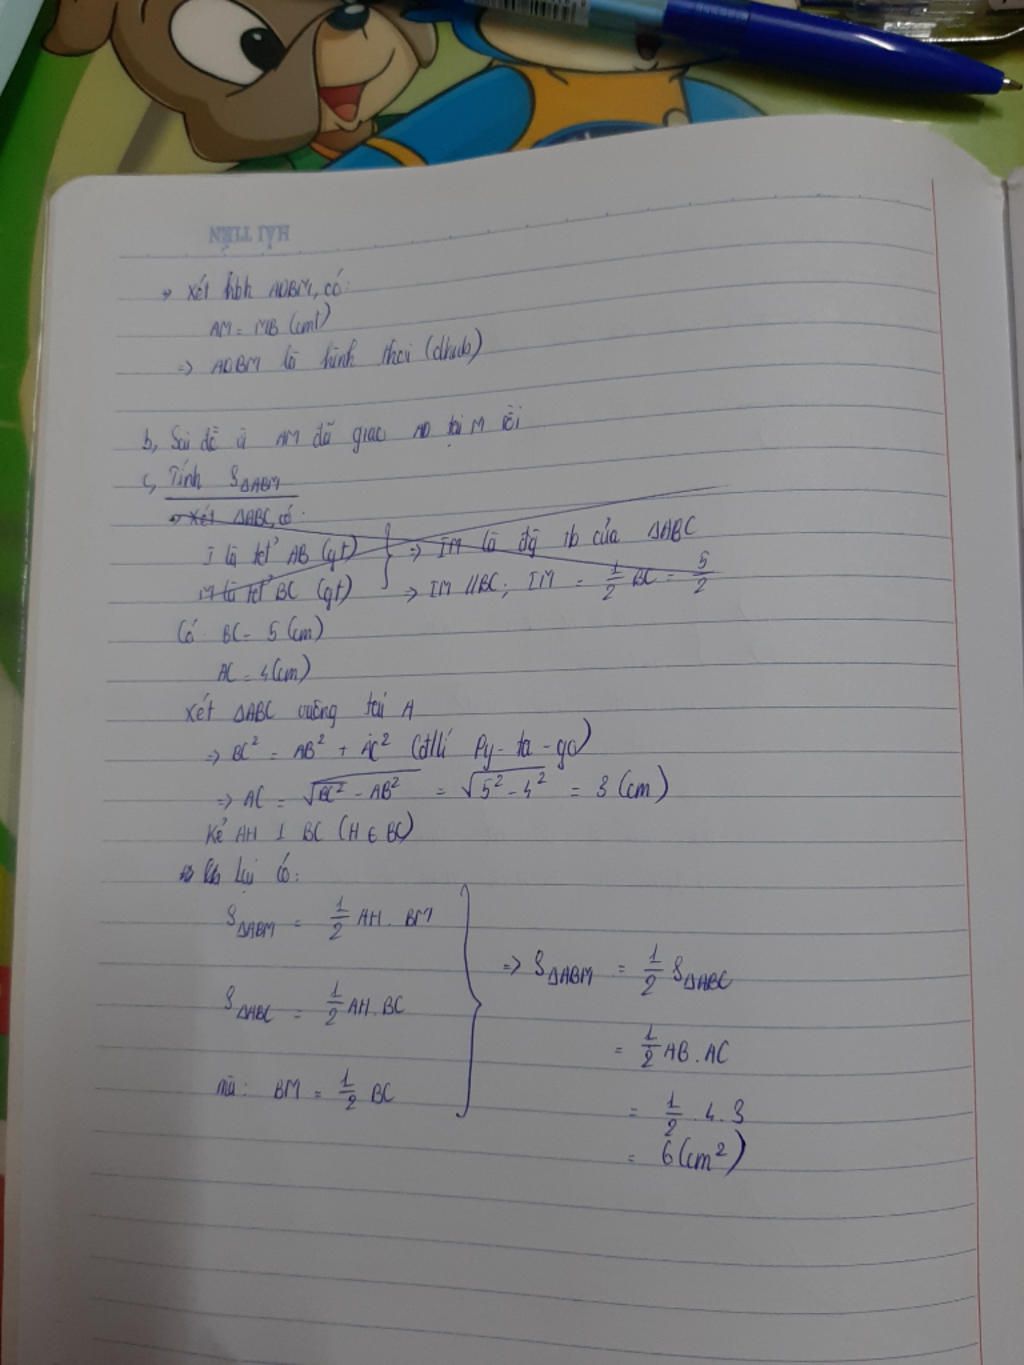 HẢI TIẾN
→ Xét hbh ADBM, có:
AM = MB (cmt)
⇒ ADBM là hình thoi (dhnb)
b, Sai đề vì AM đã giao AD tại M rồi
c, Tính S△ABM
→ Xét △ABC, có:
I là tđ' AB (gt) ⇒ IM là đg tb của △ABC
M là tđ' BC (gt) ⇒ IM // BC; IM = 1/2 BC = 5/2
Có BC = 5 (cm)
AC = 4 (cm)
Xét △ABC vuông tại A
⇒ BC² = AB² + AC² (đ/lí Py-ta-go)
⇒ AC = √BC² - AB² = √5² - 4² = 3 (cm)
Kẻ AH ⊥ BC (H ∈ BC)
lại có:
S△ABM = 1/2 AH . BM
S△ABC = 1/2 AH . BC
mà: BM = 1/2 BC
⇒ S△ABM = 1/2 S△ABC
= 1/2 AB . AC
= 1/2 . 4 . 3
= 6 (cm²)